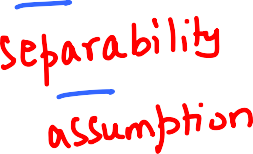 separability
assumption